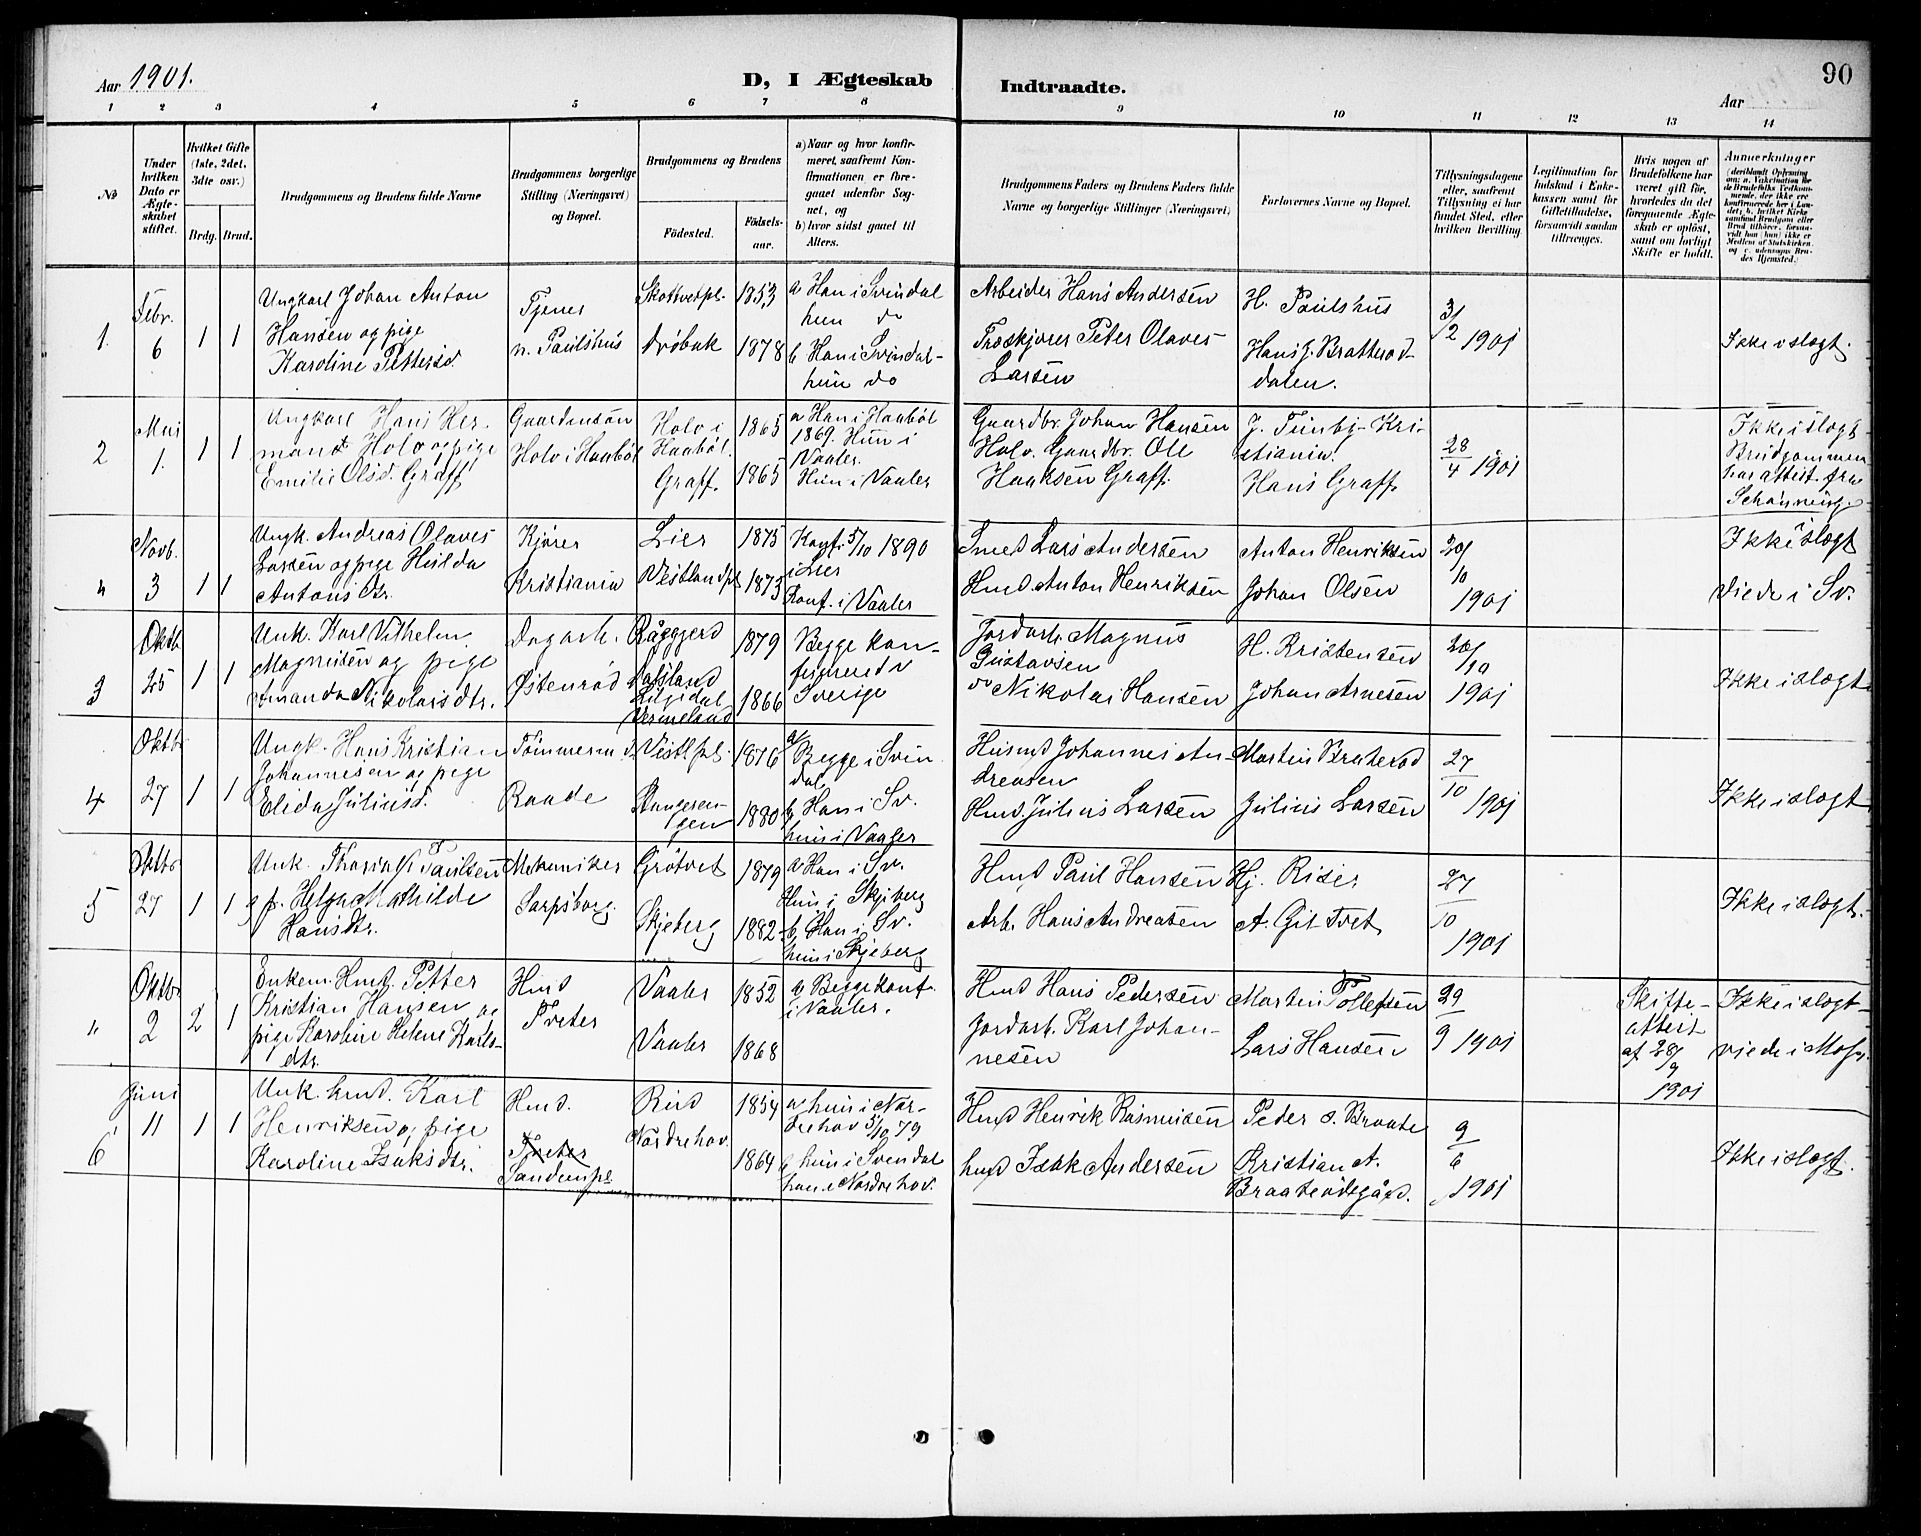 Aar 1901.
D, I Ægteskab
Indtraadte.
Aar
90
1 2 3 4 5 6 7 8 9 10 11 12 13 14
No
Under hvilken Dato er Ægteskabet stiftet.
Hvilket Gifte (1ste, 2det, 3dte osv.)
Brdg. Brud.
Brudgommens og Brudens fulde Navne
Brudgommens borgerlige Stilling (Næringsvei) og Bopæl.
Brudgommens og Brudens
Fødested.
Fødselsaar.
a) Naar og hvor konfirmeret, saafremt Konfirmationen er foregaaet udenfor Sognet, og
b) hvor sidst gaaet til Alters.
Brudgommens Faders og Brudens Faders fulde Navne og borgerlige Stillinger (Næringsvei)
Forlovernes Navne og Bopæl.
Tillysningsdagene eller, saafremt Tillysning ei har fundet Sted, efter hvilken Bevilling.
Legitimation for Indskud i Enkekassen samt for Giftetilladelse, forsaavidt saadan tiltrænges.
Hvis nogen af Brudefolkene har været gift før, hvorledes da det foregaaende Ægteskab er opløst, samt om lovligt Skifte er holdt.
Anmerkninger
1. Febr. 6
1 1
Ungkarl Johan Anton
Hansen og pige
Karoline Pettersd.
Tjener
n. Paulshus
Skottvetpl. 1853
Drøbak 1878
a Han i Svindal
hun do
b Han i Svindal
hun do
Arbeider Hans Andersen
Træskjærer Peter Olaves
Larsen
H. Paulshus
Hans J. Bratterød
dalen.
3/2 1901
Ikke i slægt.
2 Mai 1.
1 1
Ungkarl Hans Her
mand Holv og pige
Emilie Olsd. Graff
Gaardmansøn
Holv i Haabøl
Holv i
Haabøl. 1865
Graff. 1865
a Han i Haabøl
1869. Hun i
Vaaler.
Hun i Vaaler
Gaardbr. Johan Hansen
Holv. Gaardbr. Ole
Haaksen Graff.
J. Tunby Kri-
stiania.
Hans Graff.
28/4 1901
Ikke i slægt
Brudgommen
har attest fra
4 Novb. 3
1 1
Ungk. Andreas Olaves
Larsen og pige Hulda
Antons Dtr.
Kjører
Kristiania
Lier 1875
Vestlandpl 1873
Konf. 5/10 1890
i Lier
Konf. i Vaaler
Smed Lars Andersen
Hmd. Anton Henriksen
Anton Henriksen
Johan Olsen
20/10
1901
Ikke i slægt
viede i Sv.
3 Oktb 25
1 1
Unk. Karl Vilhelm
Magnusen og pige
Amanda Nikolaisdtr.
Dagarb.
Østenrød
Råggjerd
Dalsland 1879
Vermeland 1866
Begge kon-
firmeret i
Sverige
Jordarb. Magnus
Gustavsen
do Nikolai Hansen
H. Kristensen
Johan Arnesen
20/10
1901
Ikke i slægt
4 Oktbr 27
1 1
Ungk. Hans Kristian
Johannesen og pige
Elida Juliusd.
Tømmerm d.
Raade
Vestl. pl. 1876
Stangeren-
gen 1880
a Begge i Svin
dal
b Han i Sv.
hun i Vaaler
Husmd Johannes An-
dreasen
Hmd. Julius Larsen
Martin Braterød
Julius Larsen
27/10 1901
Ikke i slægt
5 Oktbr 27
1 1
Unk. Thorvald Paulsen
og p. Helga Mathilde
Hansdtr.
Mekaniker
Sarpsborg.
Grøtvet 1879
Skjeberg 1882
a Han i Sv.
Hun i Skjeberg
b Han i Sv.
hun i Skjeberg
Hmd Paul Hansen
Arb. Hans Andreasen
Hj. Riser
A. Gitvet
27/10
1901
Ikke i slægt.
" Oktbr 2
2 1
Enkem. Hmd. Petter
Kristian Hansen og
pige Karoline Helene Karls-
dtr.
Hmd
Tveter
Vaaler 1852
Vaaler 1868
a Begge konf.
i Vaaler.
Hmd Hans Pedersen
Jordarb. Karl Johan-
nesen
Martin Tollefsen
Lars Hansen
29/9 1901
Skifte-
attest
af 28/9
1901
Ikke i slægt
viede i Moss
6 Juni 11
1 1
Unk. hmd. Karl
Henriksen og pige
Karoline Isaksdtr.
Hmd.
Tveter
Sandempl
Rud 1854
Nordrehov. 1864
a hun i Nor-
drehov 5/10 79
b hun i Svendal
han i Nordrehov.
Hmd Henrik Rasmussen
hmd Isak Andersen
Peder s. Braate
Kristian A.
Braateødegård.
9/6
1901
Ikke i slægt.